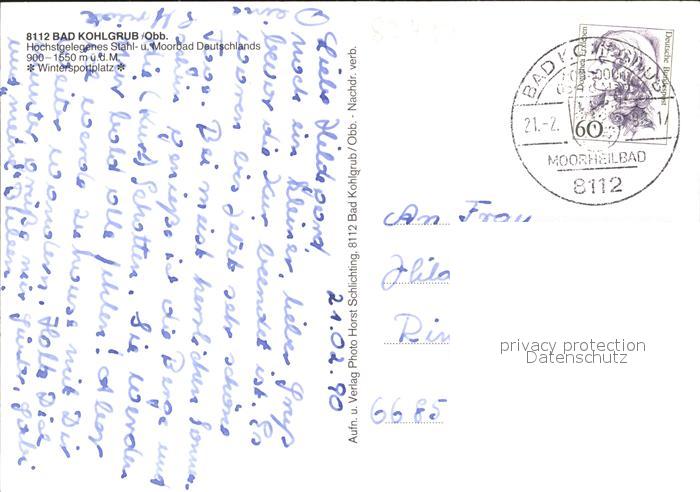 8112 BAD KOHLGRUB /Obb.
Höchstgelegenes Stahl- u. Moorbad Deutschlands
900 – 1550 m ü.d.M.
✻ Wintersportplatz ✻
21.02.90
Liebe Hildegard,
noch ein kleiner, lieber Gruß
bevor die Kur beendet ist. Es
waren bis jetzt sehr schöne
Tage. Bei meist herrlichem Sonnen
genieße ich die Berge und
(Kur) Schatten. Sie werden
mir bald alle fehlen! Aber
ich werde zuhause mit Dir
weiter wandern. Halt Dich
munter grüße mir
Aufn. u. Verlag Photo Horst Schlichting, 8112 Bad Kohlgrub / Obb. - Nachdr. verb.
BAD KOHLGRUB
21.-2.
MOORHEILBAD
8112
60
Deutsche Bundespost
An Frau
Hild
Rin
6685
privacy protection
Datenschutz